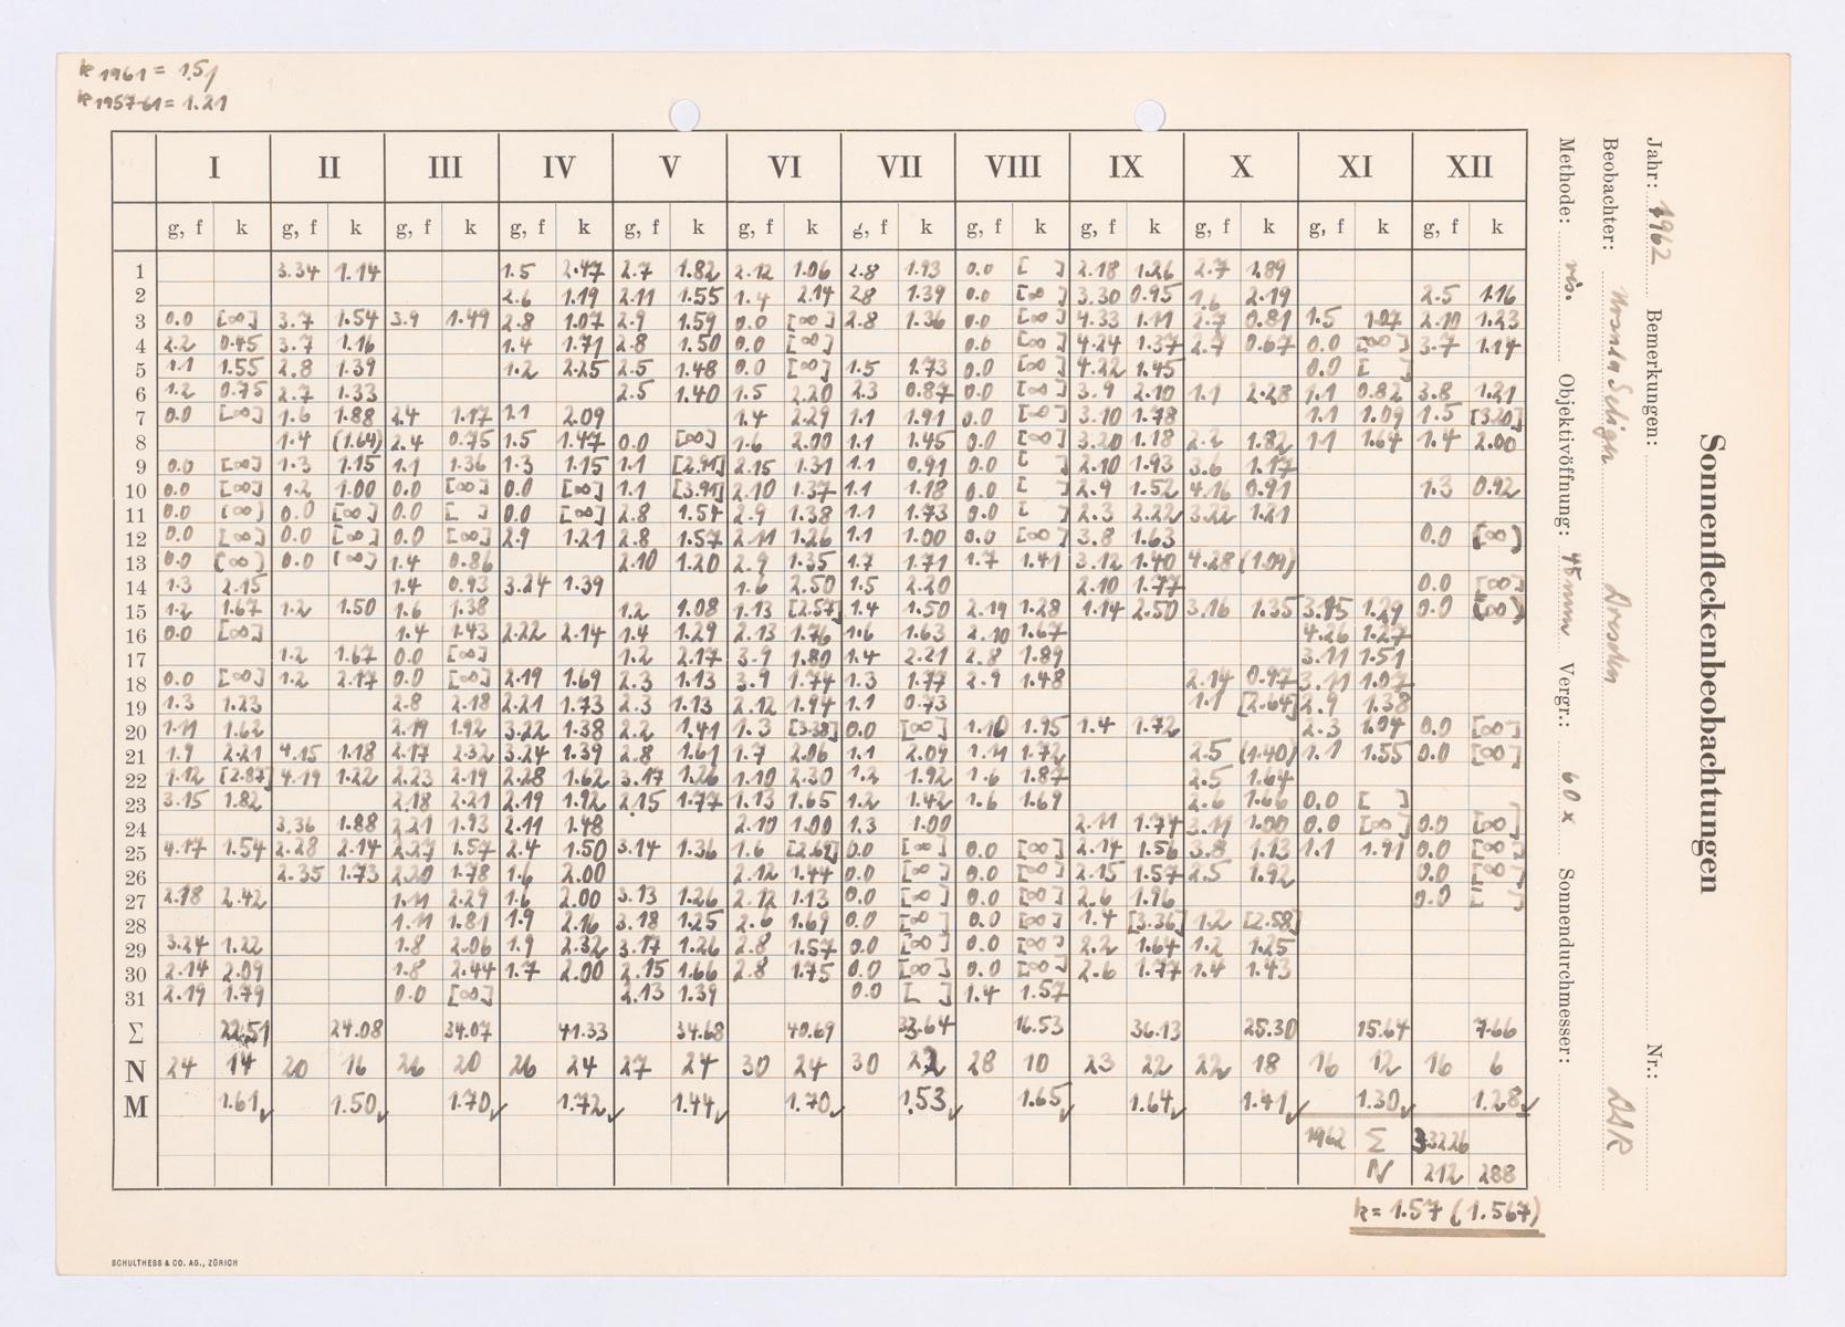 k 1961 = 1.51
k 1957-61 = 1.21
Sonnenfleckenbeobachtungen
Jahr: 1962 Bemerkungen: Nr.:
Beobachter: Dresden DDR
Methode: vis. Objektivöffnung: 45 mm Vergr.: 60 x Sonnendurchmesser:
I II III IV V VI VII VIII IX X XI XII
g, f k g, f k g, f k g, f k g, f k g, f k g, f k g, f k g, f k g, f k g, f k g, f k
1 3.34 1.14 1.5 2.47 2.7 1.82 2.12 1.06 2.8 1.93 0.0 [ ] 2.18 1.26 2.7 1.89
2 2.6 1.19 2.11 1.55 1.4 2.14 28 1.39 0.0 [∞] 3.30 0.95 1.6 2.19 2.5 1.16
3 0.0 [∞] 3.7 1.54 3.9 1.49 2.8 1.07 2.9 1.59 0.0 [∞] 2.8 1.36 0.0 [∞] 4.33 1.11 2.7 0.81 1.5 1.07 2.10 1.23
4 2.2 0.45 3.7 1.16 1.4 1.71 2.8 1.50 0.0 [∞] 0.0 [∞] 4.24 1.37 2.7 0.67 0.0 [∞] 3.7 1.14
5 1.1 1.55 2.8 1.39 1.2 2.25 2.5 1.48 0.0 [∞] 1.5 1.73 0.0 [∞] 4.22 1.45 0.0 [ ]
6 1.2 0.75 2.7 1.33 2.5 1.40 1.5 2.20 2.3 0.87 0.0 [∞] 3.9 2.10 1.1 2.28 1.1 0.82 3.8 1.21
7 0.0 [∞] 1.6 1.88 2.4 1.17 1.1 2.09 1.4 2.29 1.1 1.91 0.0 [∞] 3.10 1.78 1.1 1.09 1.5 [3.20]
8 1.4 (1.64) 2.4 0.75 1.5 1.47 0.0 [∞] 1.6 2.00 1.1 1.45 0.0 [∞] 3.20 1.18 2.2 1.82 1.1 1.64 1.4 2.00
9 0.0 [∞] 1.3 1.15 1.1 1.36 1.3 1.15 1.1 [2.91] 2.15 1.31 1.1 0.91 0.0 [ ] 2.10 1.93 3.6 1.17
10 0.0 [∞] 1.2 1.00 0.0 [∞] 0.0 [∞] 1.1 [3.91] 2.10 1.37 1.1 1.18 0.0 [ ] 2.9 1.52 4.16 0.91 1.3 0.92
11 0.0 [∞] 0.0 [∞] 0.0 [ ] 0.0 [∞] 2.8 1.54 2.9 1.38 1.1 1.73 0.0 [ ] 2.3 2.22 3.22 1.21
12 0.0 [∞] 0.0 [∞] 0.0 [∞] 2.9 1.21 2.8 1.57 2.11 1.26 1.1 1.00 0.0 [∞] 3.8 1.63 0.0 [∞]
13 0.0 [∞] 0.0 [∞] 1.4 0.86 2.10 1.20 2.9 1.35 1.7 1.71 1.7 1.41 3.12 1.40 4.28 (1.09)
14 1.3 2.15 1.4 0.93 3.24 1.39 1.6 2.50 1.5 2.20 2.10 1.77 0.0 [∞]
15 1.2 1.67 1.2 1.50 1.6 1.38 1.2 1.08 1.13 [2.57] 1.4 1.50 2.19 1.28 1.14 2.50 3.16 1.35 3.15 1.29 0.0 [∞]
16 0.0 [∞] 1.4 1.43 2.22 2.14 1.4 1.29 2.13 1.76 1.6 1.63 2.10 1.67 4.26 1.27
17 1.2 1.67 0.0 [∞] 1.2 2.17 3.9 1.80 1.4 2.21 2.8 1.89 3.11 1.51
18 0.0 [∞] 1.2 2.17 0.0 [∞] 2.19 1.69 2.3 1.13 3.9 1.74 1.3 1.77 2.9 1.48 2.14 0.97 3.11 1.07
19 1.3 1.23 2.8 2.18 2.21 1.73 2.3 1.13 2.12 1.94 1.1 0.73 1.1 [2.64] 2.9 1.38
20 1.11 1.62 2.19 1.92 3.22 1.38 2.2 1.41 1.3 [3.38] 0.0 [∞] 1.10 1.95 1.4 1.72 2.3 1.04 0.0 [∞]
21 1.9 2.21 4.15 1.18 2.17 2.32 3.24 1.39 2.8 1.61 1.7 2.06 1.1 2.09 1.11 1.72 2.5 (1.40) 1.1 1.55 0.0 [∞]
22 1.12 [2.87] 4.19 1.22 2.23 2.19 2.28 1.62 3.17 1.26 1.10 2.30 1.2 1.92 1.6 1.87 2.5 1.64
23 3.15 1.82 2.18 2.21 2.19 1.92 2.15 1.77 1.13 1.65 1.2 1.42 1.6 1.69 2.6 1.66 0.0 [ ]
24 3.36 1.88 2.21 1.93 2.11 1.48 2.10 1.00 1.3 1.00 2.11 1.74 3.11 1.00 0.0 [∞] 0.0 [∞]
25 4.17 1.54 2.28 2.14 2.27 1.57 2.4 1.50 3.14 1.36 1.6 [2.69] 0.0 [∞] 0.0 [∞] 2.14 1.56 3.8 1.13 1.1 1.91 0.0 [∞]
26 2.35 1.73 2.20 1.78 1.6 2.00 2.12 1.44 0.0 [∞] 0.0 [∞] 2.15 1.57 2.5 1.92 0.0 [∞]
27 2.18 2.42 1.11 2.29 1.6 2.00 3.13 1.26 2.12 1.13 0.0 [∞] 0.0 [∞] 2.6 1.96 0.0 [ ]
28 1.11 1.81 1.9 2.16 3.18 1.25 2.6 1.69 0.0 [∞] 0.0 [∞] 1.4 [3.36] 1.2 [2.58]
29 3.24 1.22 1.8 2.06 1.9 2.32 3.17 1.26 2.8 1.57 0.0 [∞] 0.0 [∞] 2.2 1.64 1.2 1.25
30 2.14 2.09 1.8 2.44 1.7 2.00 2.15 1.66 2.8 1.75 0.0 [∞] 0.0 [∞] 2.6 1.77 1.4 1.43
31 2.19 1.79 0.0 [∞] 2.13 1.39 0.0 [ ] 1.4 1.57
Σ 22.51 24.08 34.07 41.33 34.68 40.69 33.64 16.53 36.13 25.30 15.64 7.66
N 24 14 20 16 26 20 26 24 27 24 30 24 30 22 28 10 23 22 22 18 16 12 16 6
M 1.61 1.50 1.70 1.72 1.44 1.70 1.53 1.65 1.64 1.41 1.30 1.28
1962 Σ 332.26
N 212 288
k = 1.57 (1.567)
SCHULTHESS & CO. AG., ZÜRICH